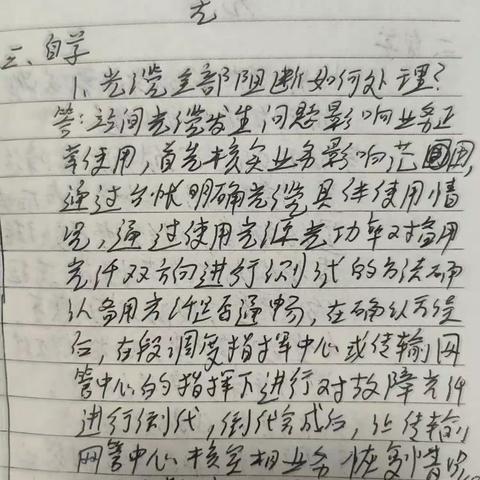 无
三、自学
1、光缆全部阻断如何处理?
答:站间光缆发生问题影响业务正
常使用,首先核实业务影响范围,
通过台帐明确光缆具体使用情
况,通过使用光源光功率对备用
光纤双方向进行测试的方法确
认备用光纤是否通畅,在确认无误
后,在段调度指挥中心或传输网
管中心的指挥下进行对故障光纤
进行倒代,倒代完成后,让传输
网管中心核实相业务恢复情况